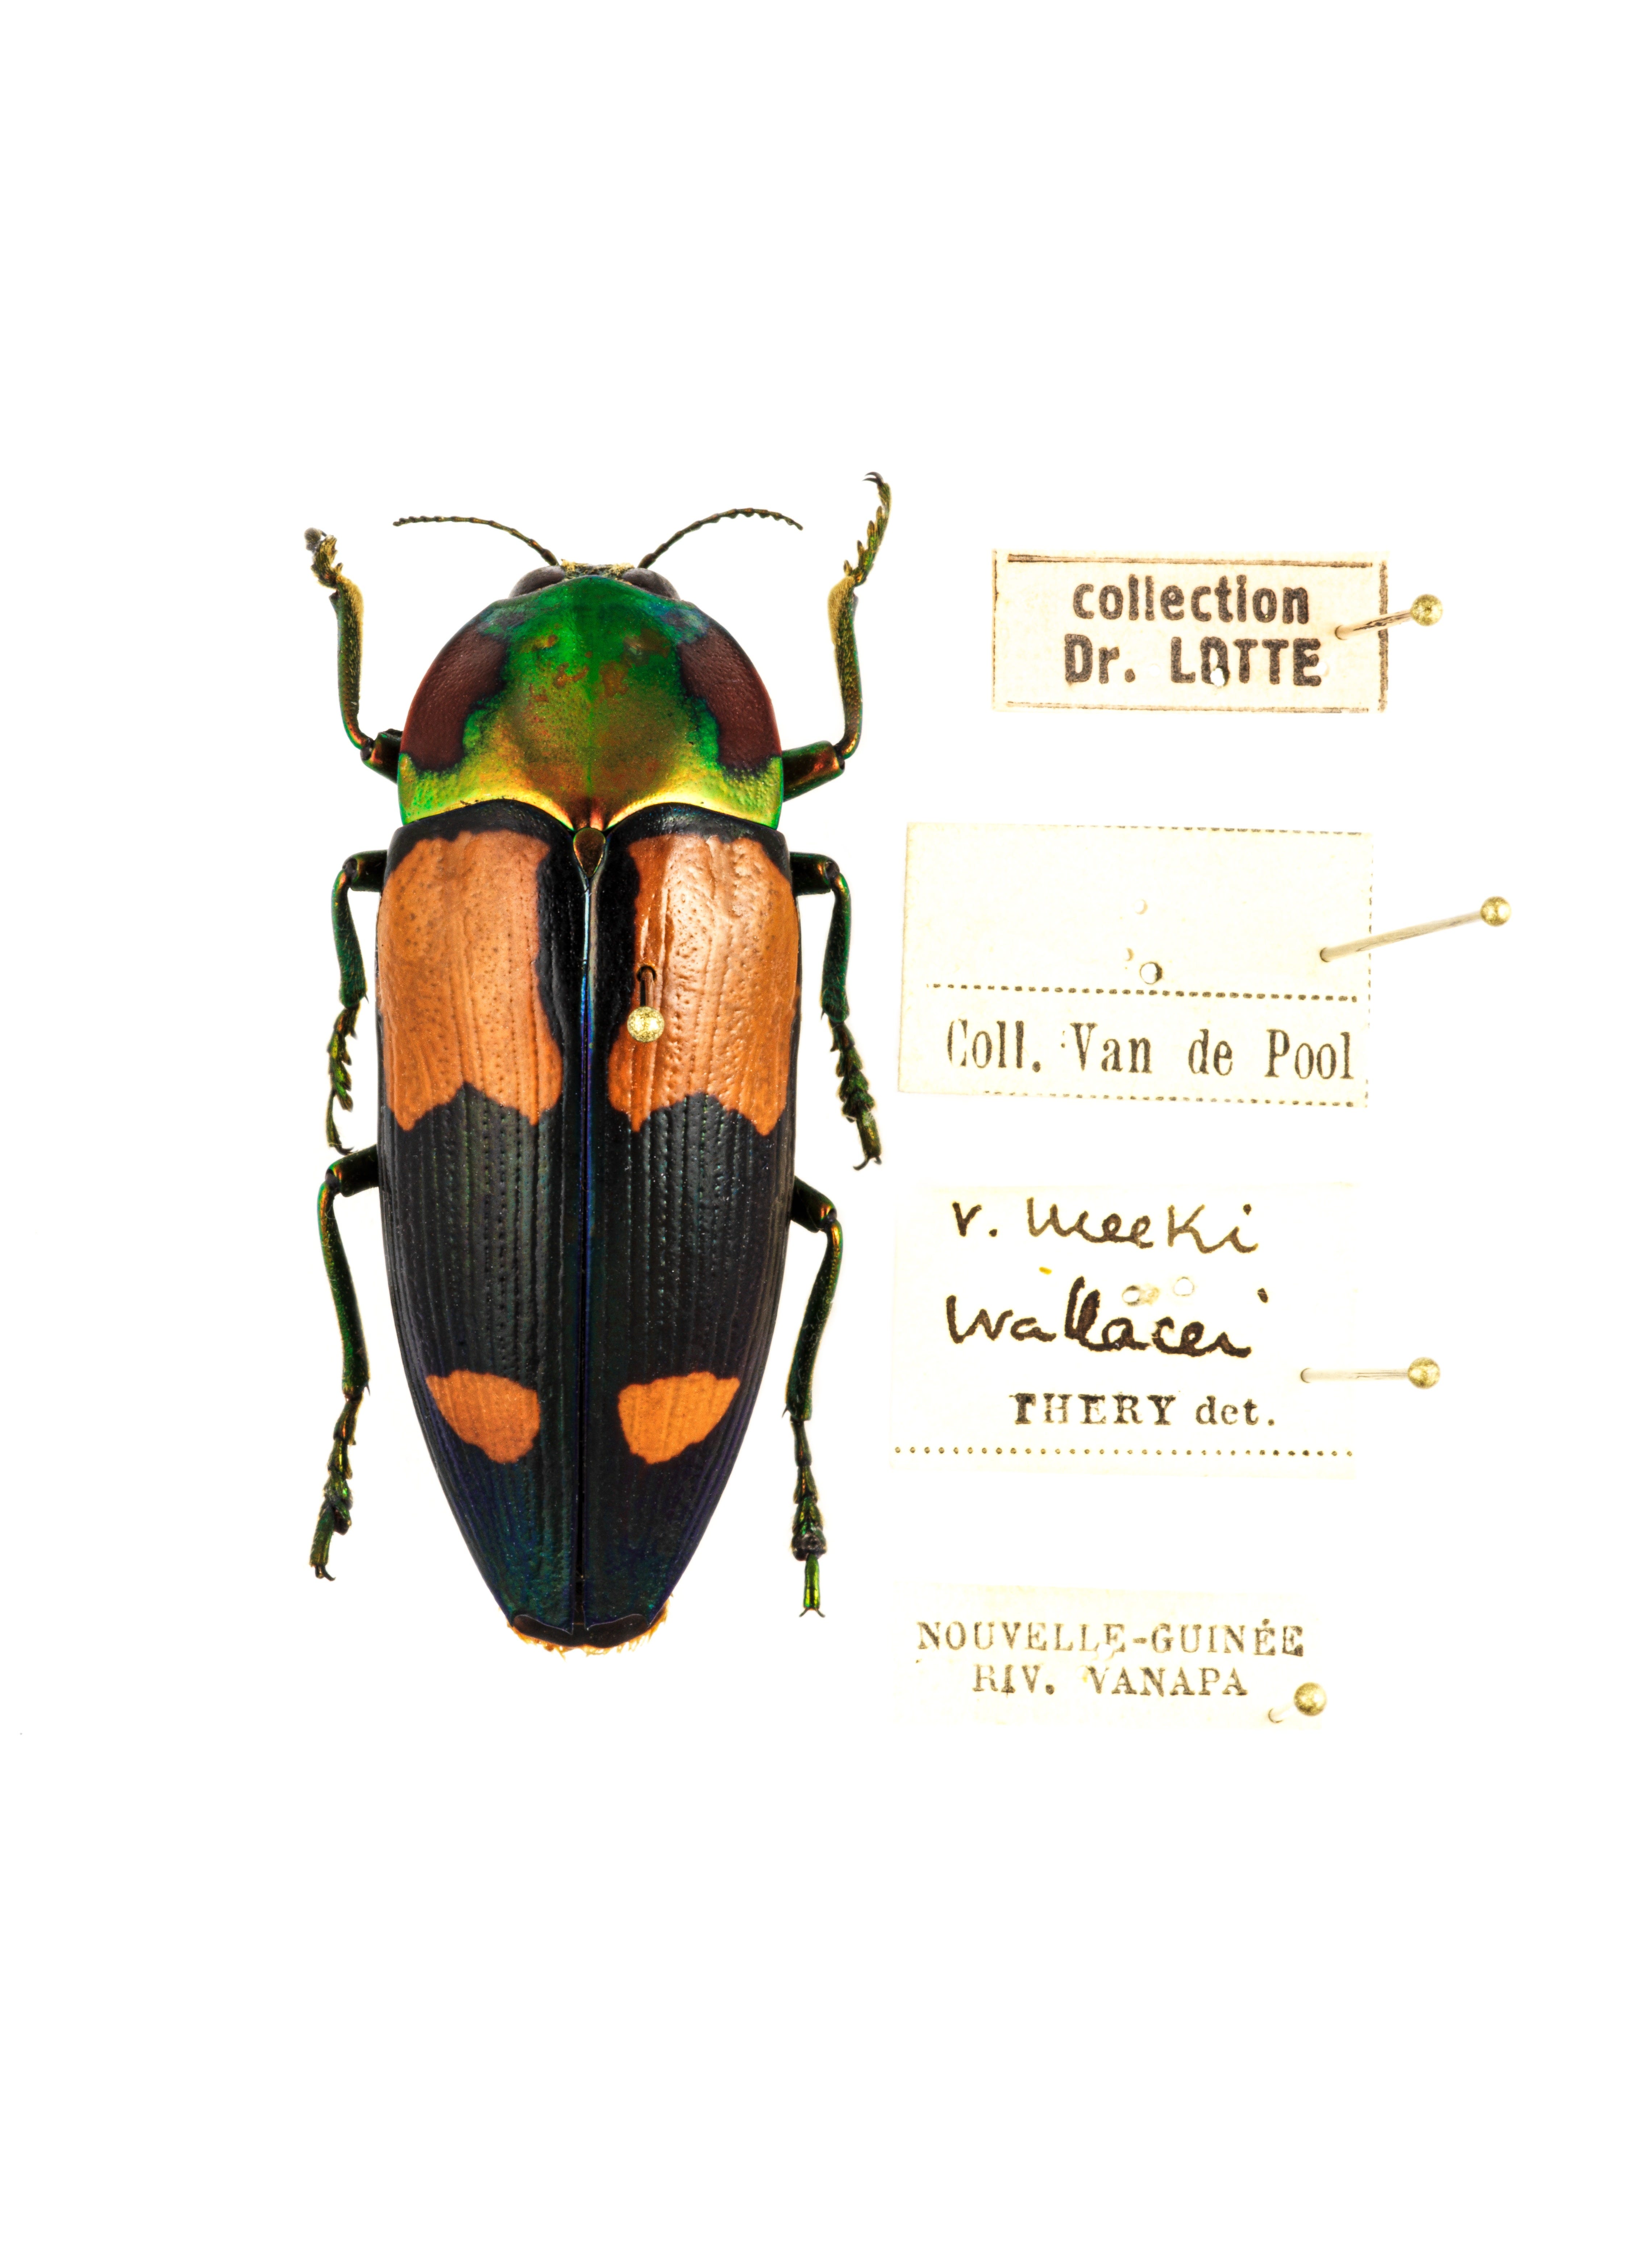 collection
Dr. LOTTE
Coll. Van de Pool
v. Meeki
Wallacei
THERY det.
NOUVELLE-GUINÉE
RIV. VANAPA